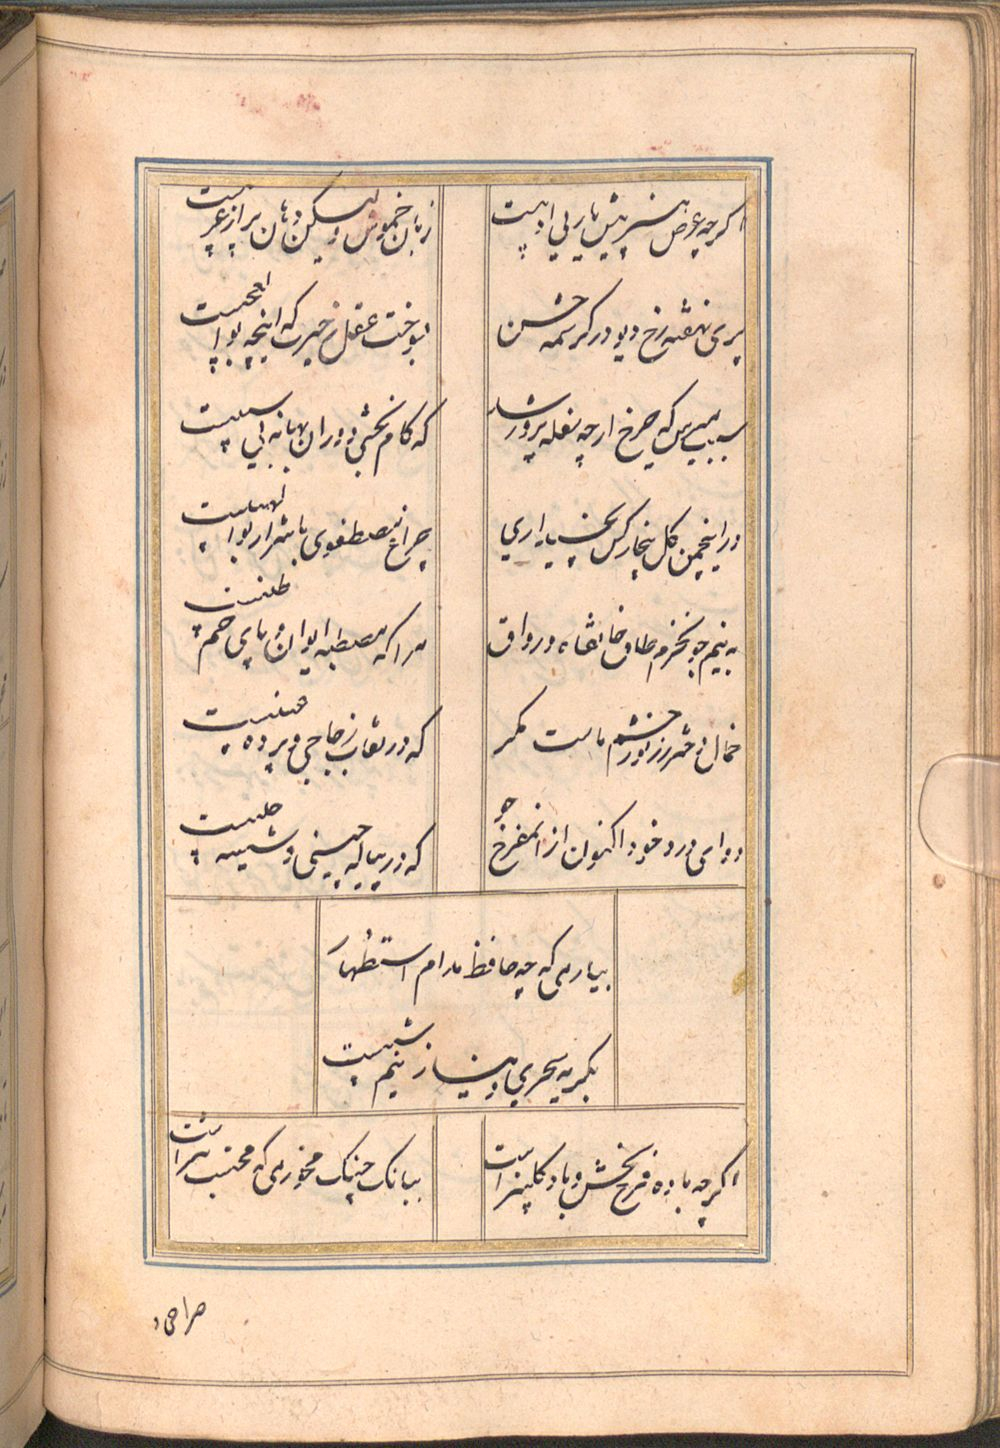 اگرچه عرض هنر پیش یار بی ادبیست
زبان خموش ولیکن دهان پر از عربیست
پری نهفته رخ و دیو در کرشمه حسن
بسوخت عقل ز حیرت که اینچه بوالعجبیست
سبب مپرس که چرخ از چه سفله پرور شد
که کام بخشی دوران بهانه بی سببیست
در این چمن گل بیخار کس نچید آری
چراغ مصطفوی با شرار بولهبیست
به نیم جو نخرم طاق خانقاه و رواق
مرا که مصطبه ایوان و پای خم طنبیست
جمال دختر رز نور چشم ماست مگر
که در نقاب زجاجی و پرده عنبیست
دوای درد خود اکنون از ان مفرح جو
که در پیاله چینی و شیشه حلبیست
بیار می که چو حافظ مدام استظهار
بگریه سحری و نیاز نیم شبیست
اگرچه باده فرح بخش و باد گلبیز است
ببانک چنک مخور می که محتسب تیز است
صراحی و